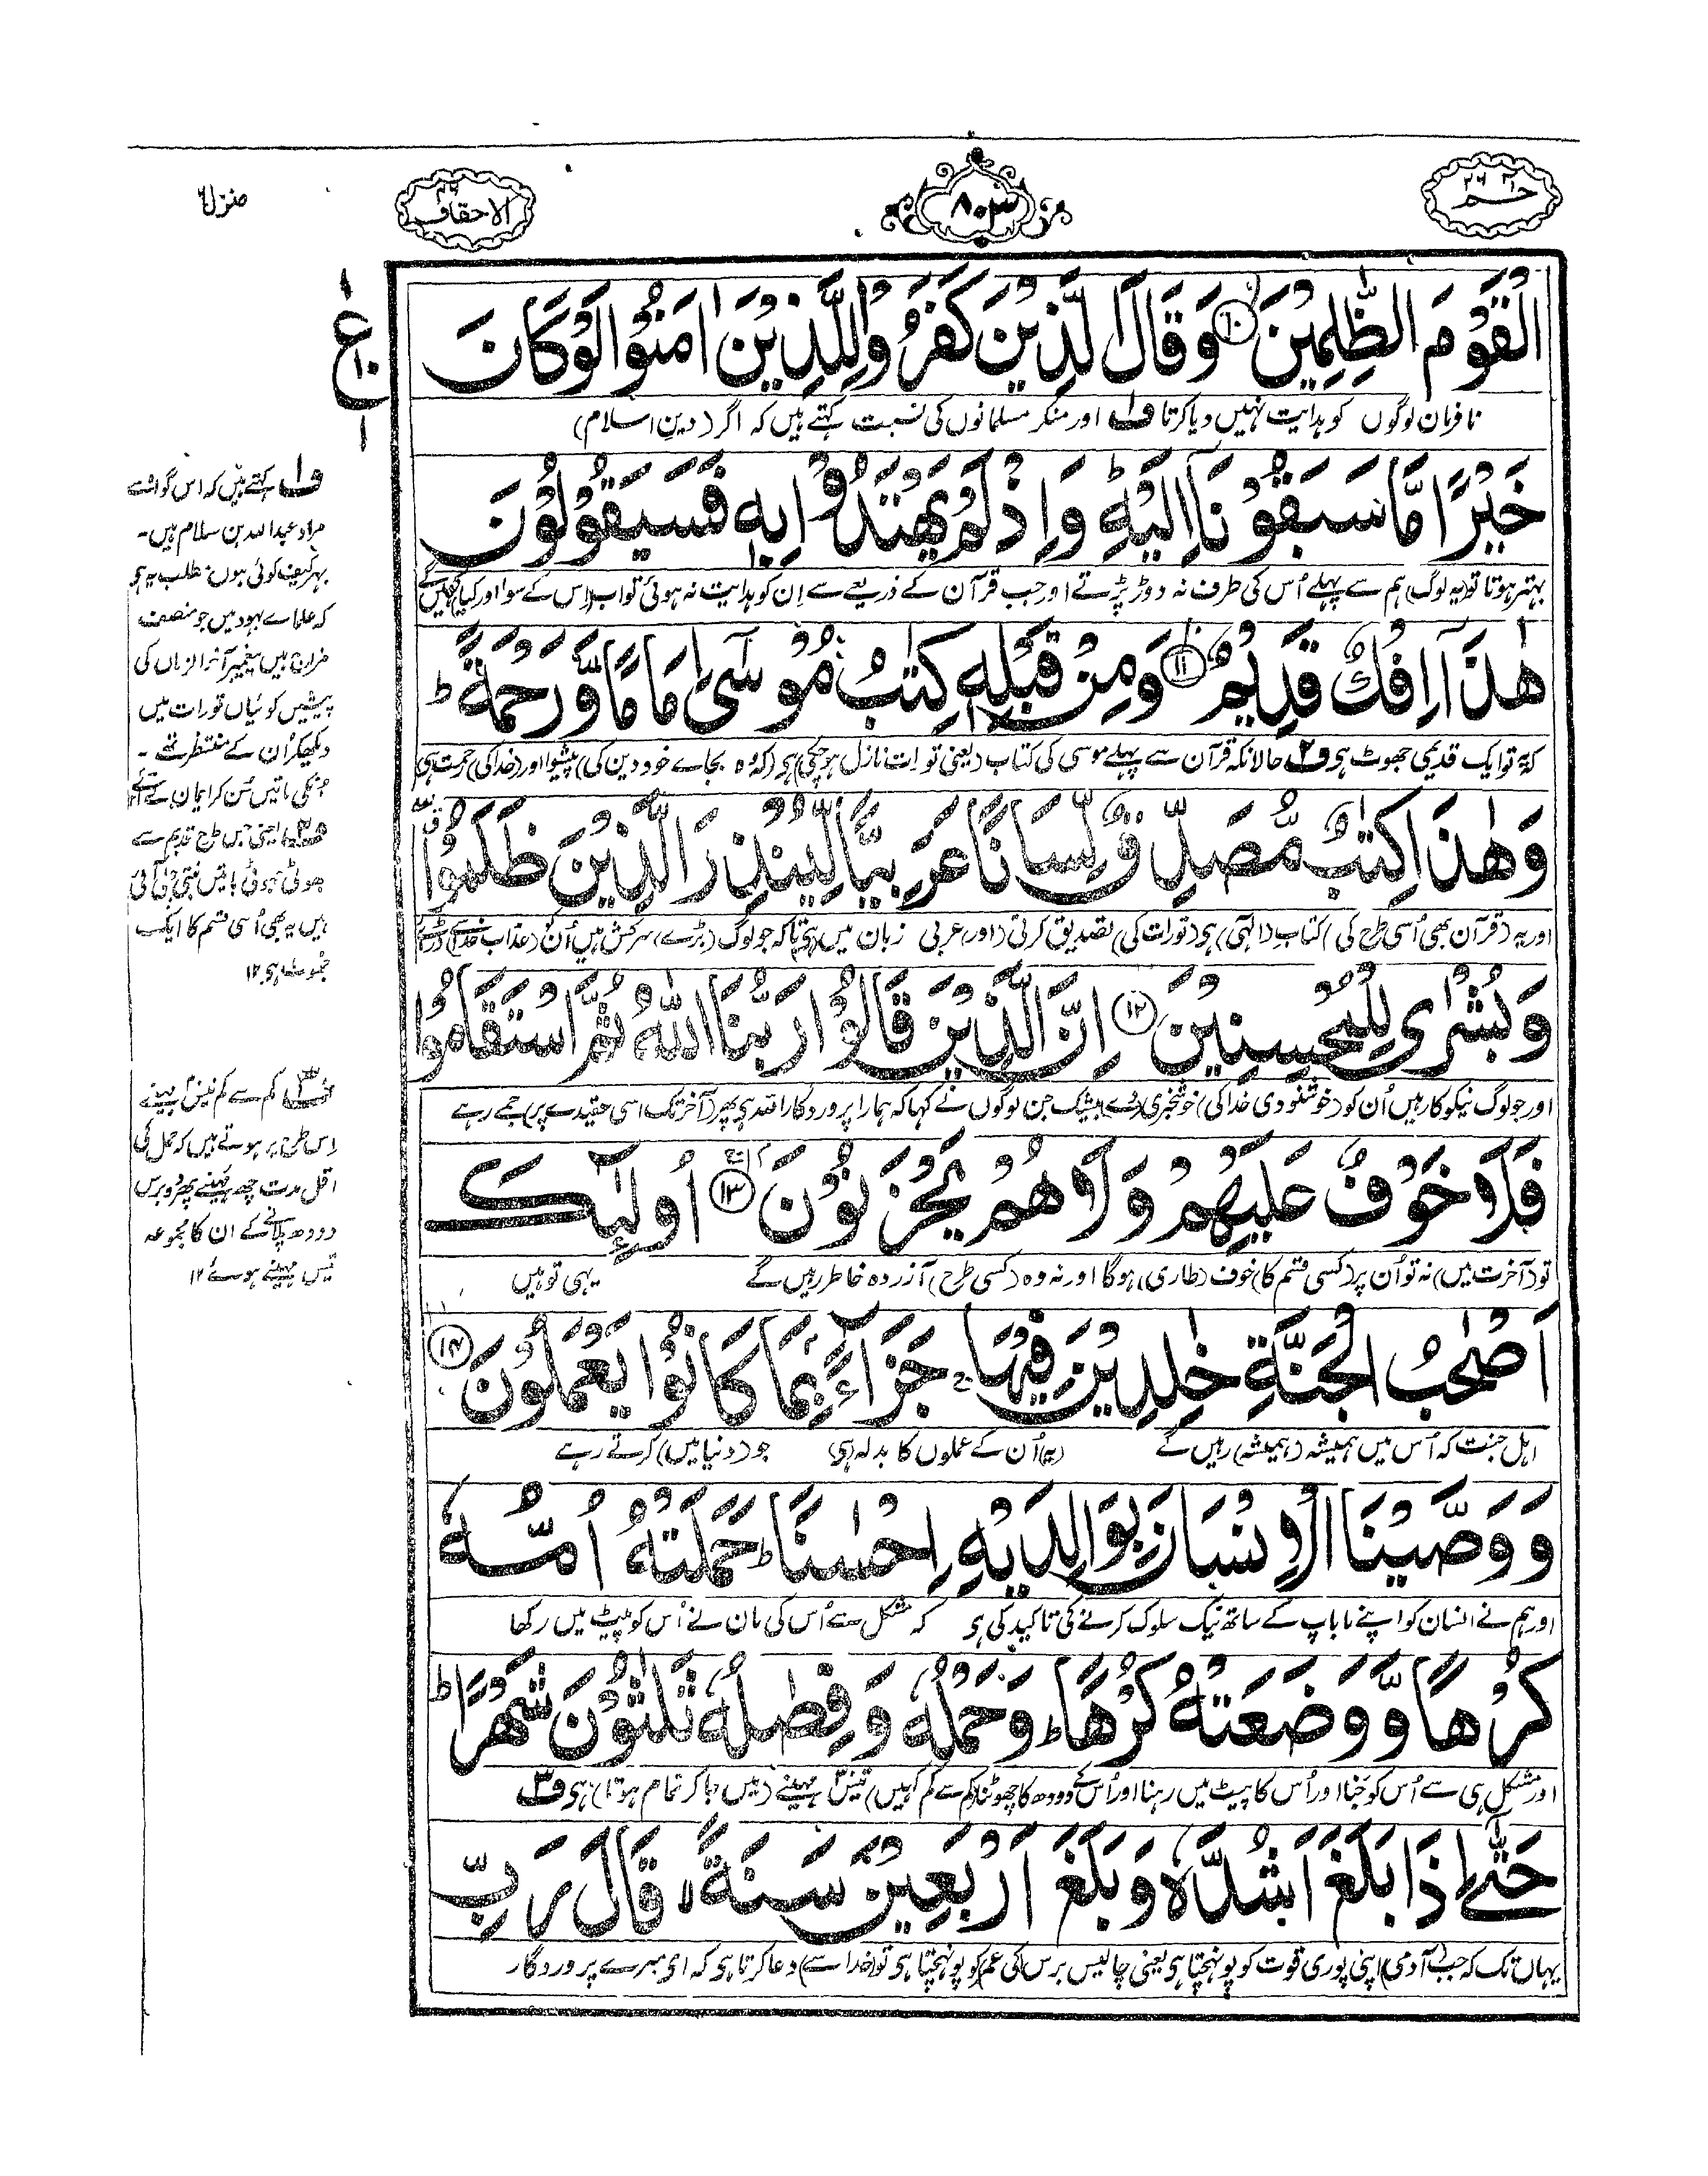 حٰمٓ ۲۶
۸۰۳
الاحقاف ۴۶
منزل ۶
الْقَوْمَ الظّٰلِمِيْنَ ۝۱۰ وَقَالَ الَّذِيْنَ كَفَرُوْا لِلَّذِيْنَ اٰمَنُوْا لَوْ كَانَ
نافرمان لوگوں کو ہدایت نہیں دیا کرتا ف۱ اور منکر مسلمانوں کی نسبت کہتے ہیں کہ اگر (دین اسلام)
خَيْرًا مَّا سَبَقُوْنَاۤ اِلَيْهِ ؕ وَاِذْ لَمْ يَهْتَدُوْا بِهٖ فَسَيَقُوْلُوْنَ
بہتر ہوتا تو (یہ لوگ) ہم سے پہلے اُس کی طرف نہ دوڑ پڑتے اور جب قرآن کے ذریعے سے اِن کو ہدایت نہ ہوئی تو اب (اِس کے سوا اور کیا) کہیں گے
هٰذَاۤ اِفْكٌ قَدِيْمٌ ۝۱۱ وَمِنْ قَبْلِهٖ كِتٰبُ مُوْسٰۤى اِمَامًا وَّرَحْمَةً ؕ
کہ یہ تو ایک قدیمی جھوٹ ہی ف۲ حالانکہ قرآن سے پہلے موسی کی کتاب (یعنی تورات نازل ہو چکی) ہی (کہ وہ بجاے خود دین کی) پیشوا اور (خدا کی) رحمت ہی
وَهٰذَا كِتٰبٌ مُّصَدِّقٌ لِّسَانًا عَرَبِيًّا لِّيُنْذِرَ الَّذِيْنَ ظَلَمُوْا
اور یہ (قرآن بھی اُسی طرح کی) کتاب (الٰہی) ہی (تورات کی) تصدیق کرتی (اور) عربی زبان میں (ہی) تاکہ جو لوگ (بڑے) سرکش ہیں اُن کو (عذاب خدا سے) ڈراے
وَبُشْرٰى لِلْمُحْسِنِيْنَ ۝۱۲ اِنَّ الَّذِيْنَ قَالُوْا رَبُّنَا اللّٰهُ ثُمَّ اسْتَقَامُوْا
اور جو لوگ نیکوکار ہیں اُن کو (خوشنودی خدا کی) خوشخبری (دے) بیشک جن لوگوں نے کہا کہ ہمارا پروردگار اللہ ہی پھر (آخر تک اسی عقیدے پر) جمے رہے
فَلَا خَوْفٌ عَلَيْهِمْ وَلَا هُمْ يَحْزَنُوْنَ ۝۱۳ اُولٰٓئِكَ
تو (آخرت میں) نہ تو اُن پر (کسی قسم کا) خوف (طاری) ہوگا اور نہ وہ (کسی طرح) آزردہ خاطر رہیں گے یہی تو ہیں
اَصْحٰبُ الْجَنَّةِ خٰلِدِيْنَ فِيْهَا ۚ جَزَآءًۢ بِمَا كَانُوْا يَعْمَلُوْنَ ۝۱۴
اہل جنت کہ اُس میں ہمیشہ (ہمیشہ) رہیں گے (یہ) اُن کے عملوں کا بدلہ (ہی) جو (دنیا میں) کرتے رہے
وَوَصَّيْنَا الْاِنْسَانَ بِوَالِدَيْهِ اِحْسٰنًا ؕ حَمَلَتْهُ اُمُّهٗ
اور ہم نے انسان کو اپنے ماں باپ کے ساتھ نیک سلوک کرنے کی تاکید کی ہی کہ مشکل سے اُس کی مان نے اُس کو پیٹ میں رکھا
كُرْهًا وَّوَضَعَتْهُ كُرْهًا ؕ وَحَمْلُهٗ وَفِصٰلُهٗ ثَلٰثُوْنَ شَهْرًا ؕ
اور مشکل ہی سے اُس کو جنا اور اُس کا پیٹ میں رہنا اور اُس کے دودھ کا چھوٹنا (کم سے کم کہیں) تیس مہینے (میں جا کر تمام ہوتا) ہی ف۳
حَتّٰۤى اِذَا بَلَغَ اَشُدَّهٗ وَبَلَغَ اَرْبَعِيْنَ سَنَةً ۙ قَالَ رَبِّ
یہاں تک کہ جب (آدمی) اپنی پوری قوت کو پونہچتا ہی یعنی چالیس برس (کی عمر) کو پونہچتا ہی تو (خدا سے) دعا کرتا ہی کہ ای میرے پروردگار
ع
۱۰
۱
ف۱ کہتے ہیں کہ اس گواہ سے
مراد عبداللہ بن سلام ہیں۔
بہر کیف کوئی ہوں مطلب یہ ہی
کہ علماے یہود میں جو منصف
مزاج ہیں پیغمبر آخر الزماں کی
پیشین گوئیاں تورات میں
دیکھ کر اُن کے منتظر تھے۔
اُنکی باتیں سُن کر ایمان لے آئے
ف۲ یعنی جس طرح قدیم سے
جھوٹی جھوٹی باتیں بنتی چلی آئی
ہیں یہ بھی اُسی قسم کا ایک
جھوٹ ہی ۱۲
ف۳ کم سے کم تیس مہینے
اِس طرح پر ہوتے ہیں کہ حمل کی
اقل مدت چھ مہینے پھر دو برس
دودھ پلانے کے ان کا مجموعہ
تیس مہینے ہوئے ۱۲